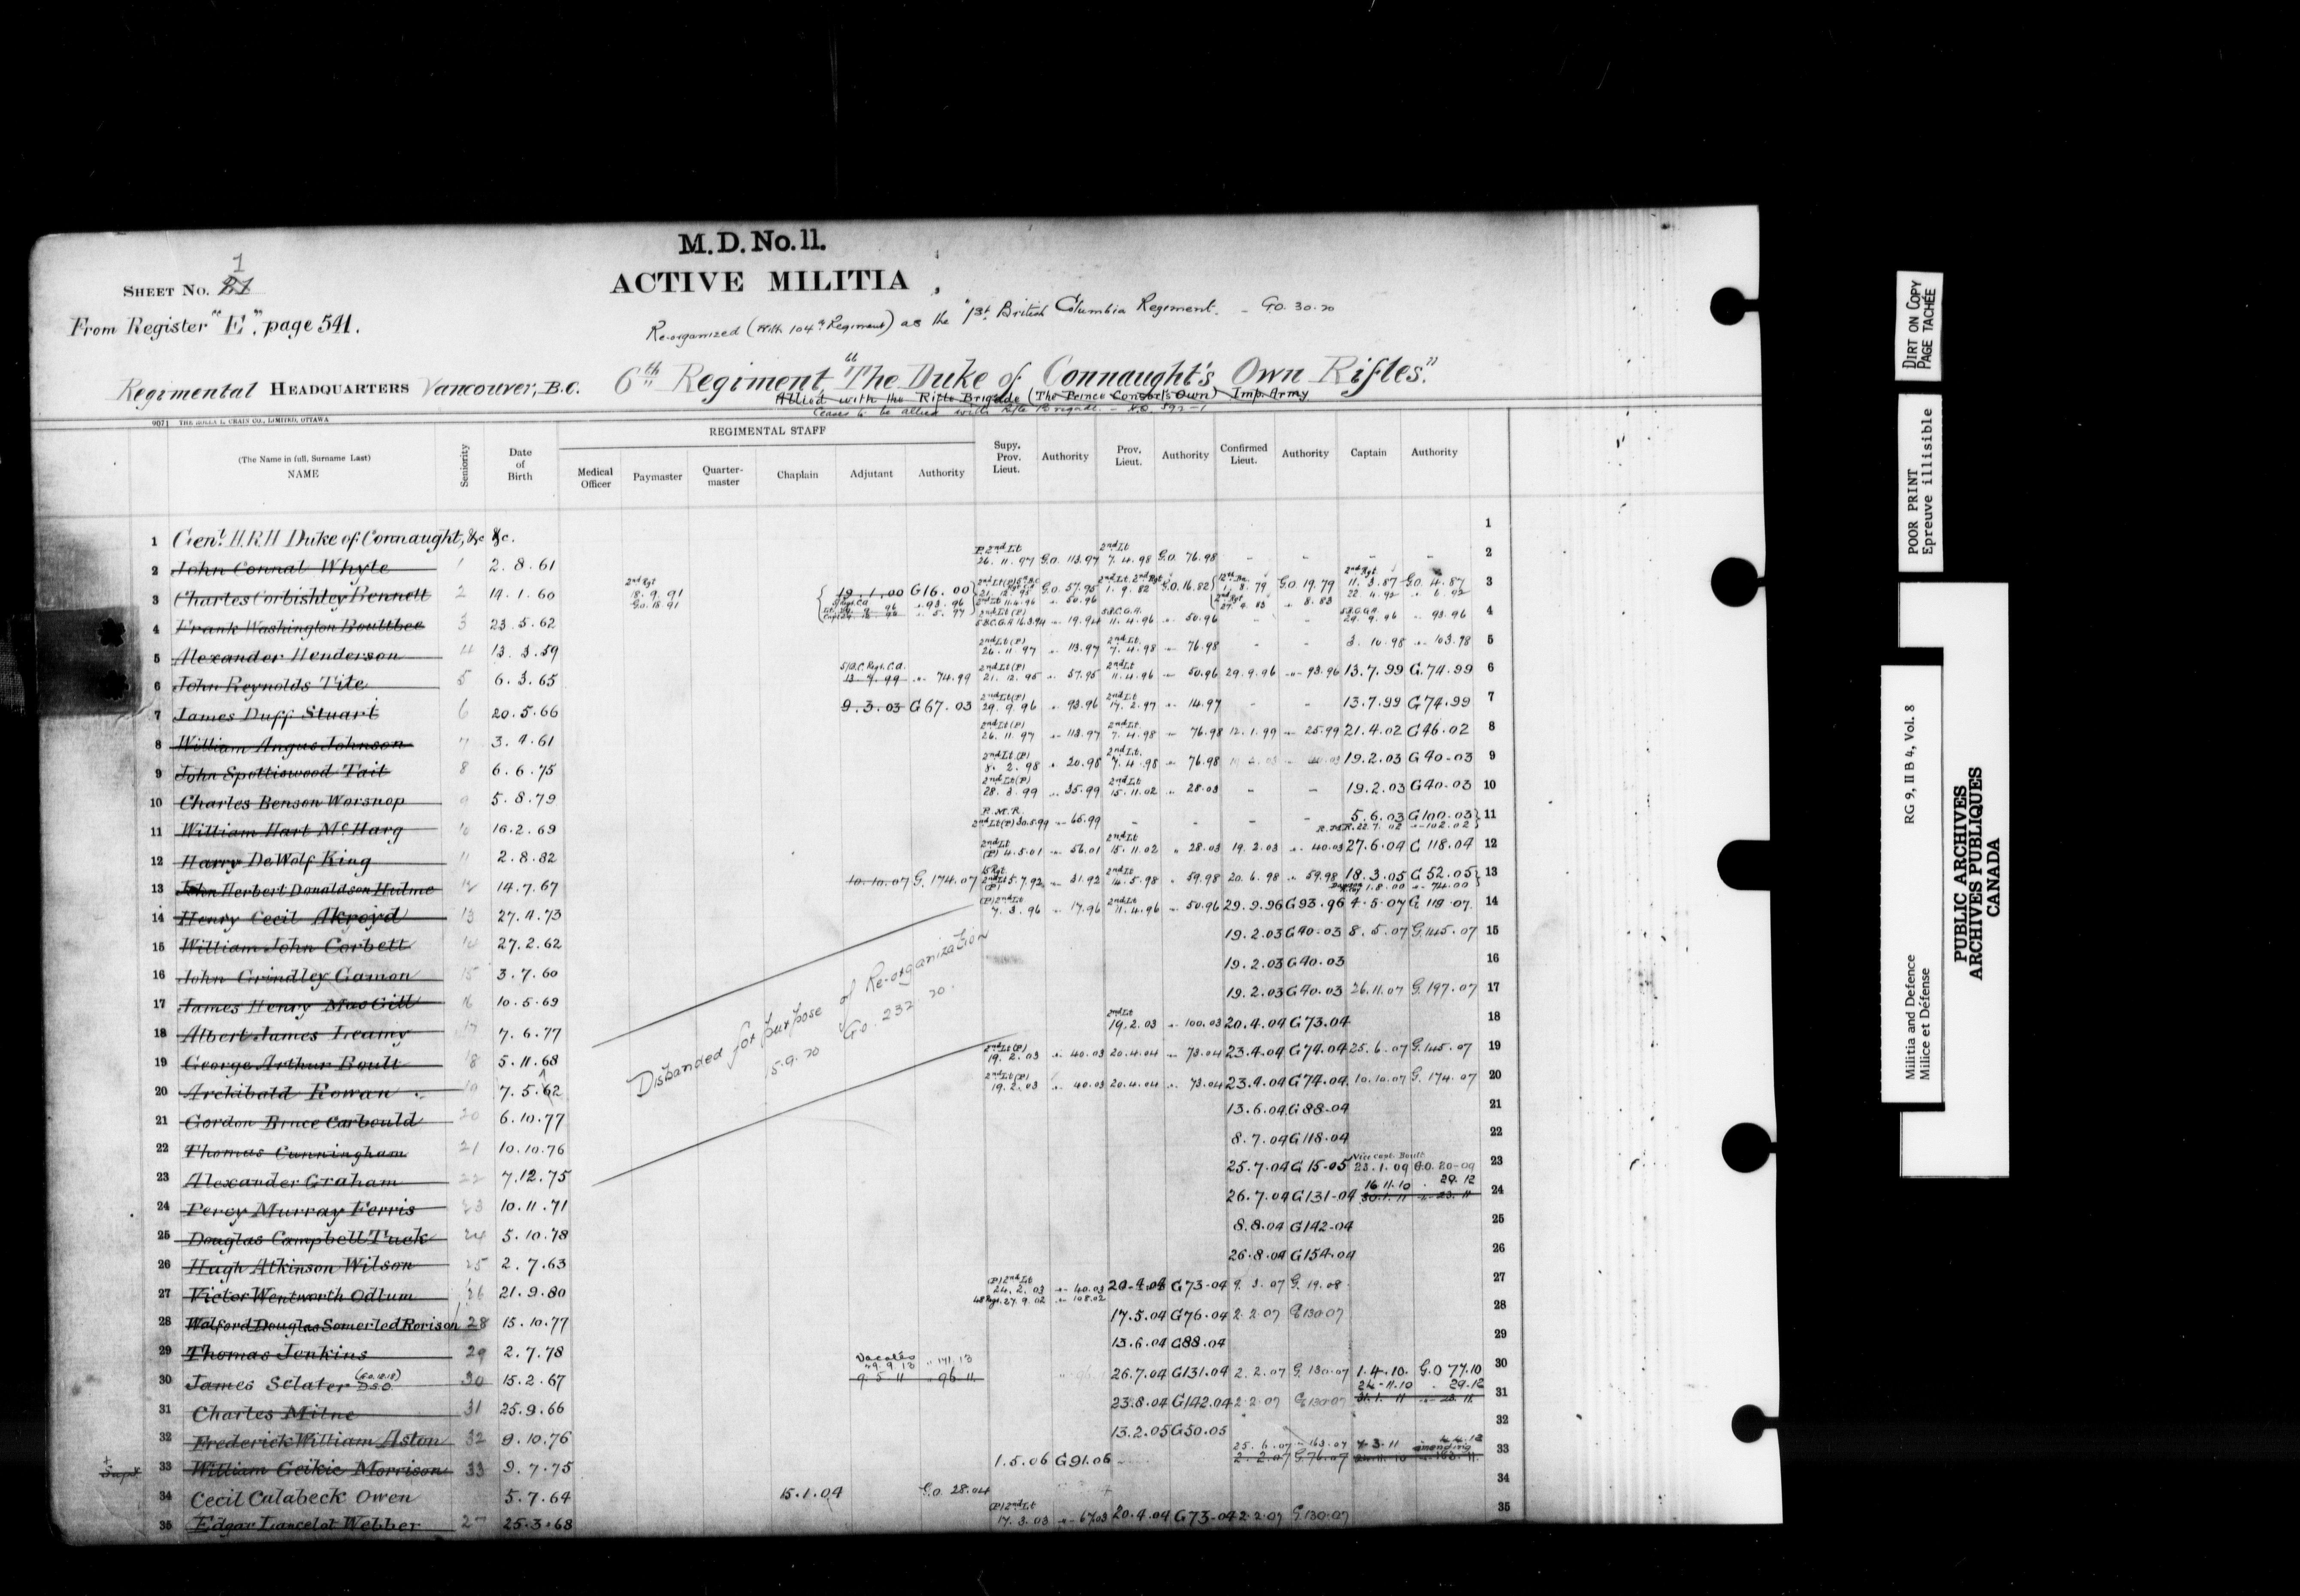 M.D. No. 11.
ACTIVE MILITIA
SHEET No. 1
From Register "E", page 541.
Re-organized (with 104th Regiment) as the "1st British Columbia Regiment. - G.O. 30.20
Regimental HEADQUARTERS Vancouver, B.C. 6th Regiment "The Duke of Connaught's Own Rifles."
Allied with the Rifle Brigade (The Prince Consort's Own) Imp. Army
Ceases to be allied with Rifle Brigade.
9071 THE ROLLA L. CRAIN CO., LIMITED, OTTAWA
REGIMENTAL STAFF
(The Name in full, Surname Last) NAME Seniority Date of Birth Medical Officer Paymaster Quarter-master Chaplain Adjutant Authority Supy. Prov. Lieut. Authority Prov. Lieut. Authority Confirmed Lieut. Authority Captain Authority
1 Genl. H.R.H Duke of Connaught, &c &c. 1
2 John Connal Whyte 1 2.8.61 P. 2nd Lt 26.11.97 G.O. 113.97 2nd Lt 7.4.98 G.O. 76.98 - - - - 2
3 Charles Corbishley Bennett 2 14.1.60 2nd Rgt 18.9.91 G.O. 18.91 19.1.00 G16.00 G.O. 57.95 1.9.82 G.O. 16.82 1.8.79 G.O. 19.79 2nd Rgt 11.3.87 G.O. 4.87 3
4 Frank Washington Boultbee 3 23.5.62 19.94 11.4.96 50.96 - - 29.9.96 93.96 4
5 Alexander Henderson 4 13.3.59 2nd Lt (P) 26.11.97 113.97 2nd Lt. 7.4.98 76.98 - - 3.10.98 103.98 5
6 John Reynolds Tite 5 6.3.65 5/B.C. Regt. C.A. 13.7.99 74.99 2nd Lt (P) 21.12.95 57.95 2nd Lt 11.4.96 50.96 29.9.96 93.96 13.7.99 G.74.99 6
7 James Duff Stuart 6 20.5.66 9.3.03 G67.03 2nd Lt (P) 29.9.96 93.96 2nd Lt 17.2.97 14.97 - - 13.7.99 G74.99 7
8 William Angus Johnson 7 3.4.61 2nd Lt (P) 26.11.97 113.97 2nd Lt. 7.4.98 76.98 12.1.99 25.99 21.4.02 G46.02 8
9 John Spottiswood Tait 8 6.6.75 2nd Lt (P) 8.2.98 20.98 2nd Lt. 7.4.98 76.98 19.2.03 G40.03 9
10 Charles Benson Worsnop 9 5.8.79 2nd Lt (P) 28.3.99 35.99 2nd Lt 15.11.02 28.03 - - 19.2.03 G40.03 10
11 William Hart McHarg 10 16.2.69 R.M.R. 2nd Lt (P) 30.5.99 65.99 - - - - 5.6.03 G100.03 R.M.R. 22.7.02 102.02 11
12 Harry DeWolf King 11 2.8.82 2nd Lt (P) 4.5.01 56.01 2nd Lt 15.11.02 28.03 19.2.03 40.03 27.6.04 G 118.04 12
13 John Herbert Donaldson Hulme 12 14.7.67 10.10.07 G. 174.07 5.7.92 31.92 2nd Lt 14.5.98 59.98 20.6.98 59.98 18.3.05 G 52.05 1.8.00 74.00 13
14 Henry Cecil Akroyd 13 27.4.73 (P) 2nd Lt 7.3.96 17.96 2nd Lt 11.4.96 50.96 29.9.96 G93.96 4.5.07 G 119.07 14
15 William John Corbett 14 27.2.62 19.2.03 G40.03 8.5.07 G.145.07 15
16 John Grindley Gamon 15 3.7.60 19.2.03 G40.03 16
17 James Henry MacGill 16 10.5.69 19.2.03 G40.03 26.11.07 G.197.07 17
18 Albert James Leamy 17 7.6.77 2nd Lt 19.2.03 100.03 20.4.04 G73.04 18
19 George Arthur Boult 18 5.11.68 2nd Lt (P) 19.2.03 40.03 20.4.04 73.04 23.4.04 G74.04 25.6.07 G.145.07 19
20 Archibald Rowan 19 7.5.62 2nd Lt (P) 19.2.03 40.03 20.4.04 73.04 23.4.04 G74.04 10.10.07 G. 174.07 20
Disbanded for purpose of Re-organization
15.9.20 G.O. 232.20.
21 Gordon Bruce Carbould 20 6.10.77 13.6.04 G88.04 21
22 Thomas Cunningham 21 10.10.76 8.7.04 G118.04 22
23 Alexander Graham 22 7.12.75 25.7.04 G15.05 Vice Capt. Boult 23.1.09 G.O. 20-09 23
24 Percy Murray Ferris 23 10.11.71 26.7.04 G131.04 16.11.10 29.12 30.1.11 23.11 24
25 Douglas Campbell Tuck 24 5.10.78 8.8.04 G142.04 25
26 Hugh Atkinson Wilson 25 2.7.63 26.8.04 G154.04 26
27 Victor Wentworth Odlum 26 21.9.80 (P) 2nd Lt 24.2.03 40.03 48 Regt. 27.9.02 108.02 20.4.04 G73.04 9.3.07 G.19.08 27
28 Walford Douglas Somerled Rorison 28 15.10.77 17.5.04 G76.04 2.2.07 G130.07 28
29 Thomas Jenkins 29 2.7.78 13.6.04 G88.04 29
30 James Sclater D.S.O. 30 15.2.67 Vacates 29.9.13 141.13 9.5.11 96.11 26.7.04 G131.04 2.2.07 G.130.07 1.4.10. G.O 77.10 30
31 Charles Milne 31 25.9.66 23.8.04 G142.04 2.2.07 G130.07 24.11.10 29.12 31.1.11 23.11 31
32 Frederick William Aston 32 9.10.76 13.2.05 G50.05 32
33 William Geikie Morrison 33 9.7.75 1.5.06 G91.06 25.6.07 163.07 2.2.07 G76.07 7.3.11 amending 33
34 Cecil Calabeck Owen 5.7.64 15.1.04 G.O. 28.04 34
35 Edgar Lancelot Webber 27 25.3.68 (P) 2nd Lt 17.3.03 67.03 20.4.04 G73.04 2.2.07 G.130.07 35
DIRT ON COPY
PAGE TACHÉE
POOR PRINT
Epreuve illisible
RG 9, II B 4, Vol. 8
Militia and Defence
Milice et Défense
PUBLIC ARCHIVES
ARCHIVES PUBLIQUES
CANADA